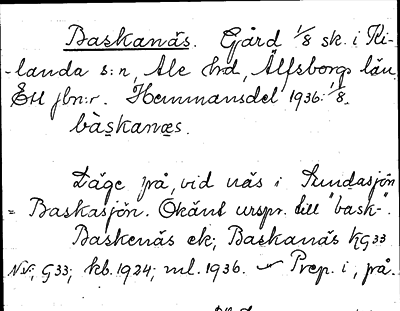 Baskanäs. Gård 1/8 sk. i Ki-
-landa s:n, Ale hd, Älfsborgs län.
Ett jbn:r. Hemmansdel 1936: 1/8.
bàskanæs.
Läge på, vid näs i Sundasjön
= Baskasjön. Okänt urspr. till "bask-".
Baskenäs ek; Baskanäs KG33
NV; G33; kb. 1924; ml. 1936. Prep. i, på.